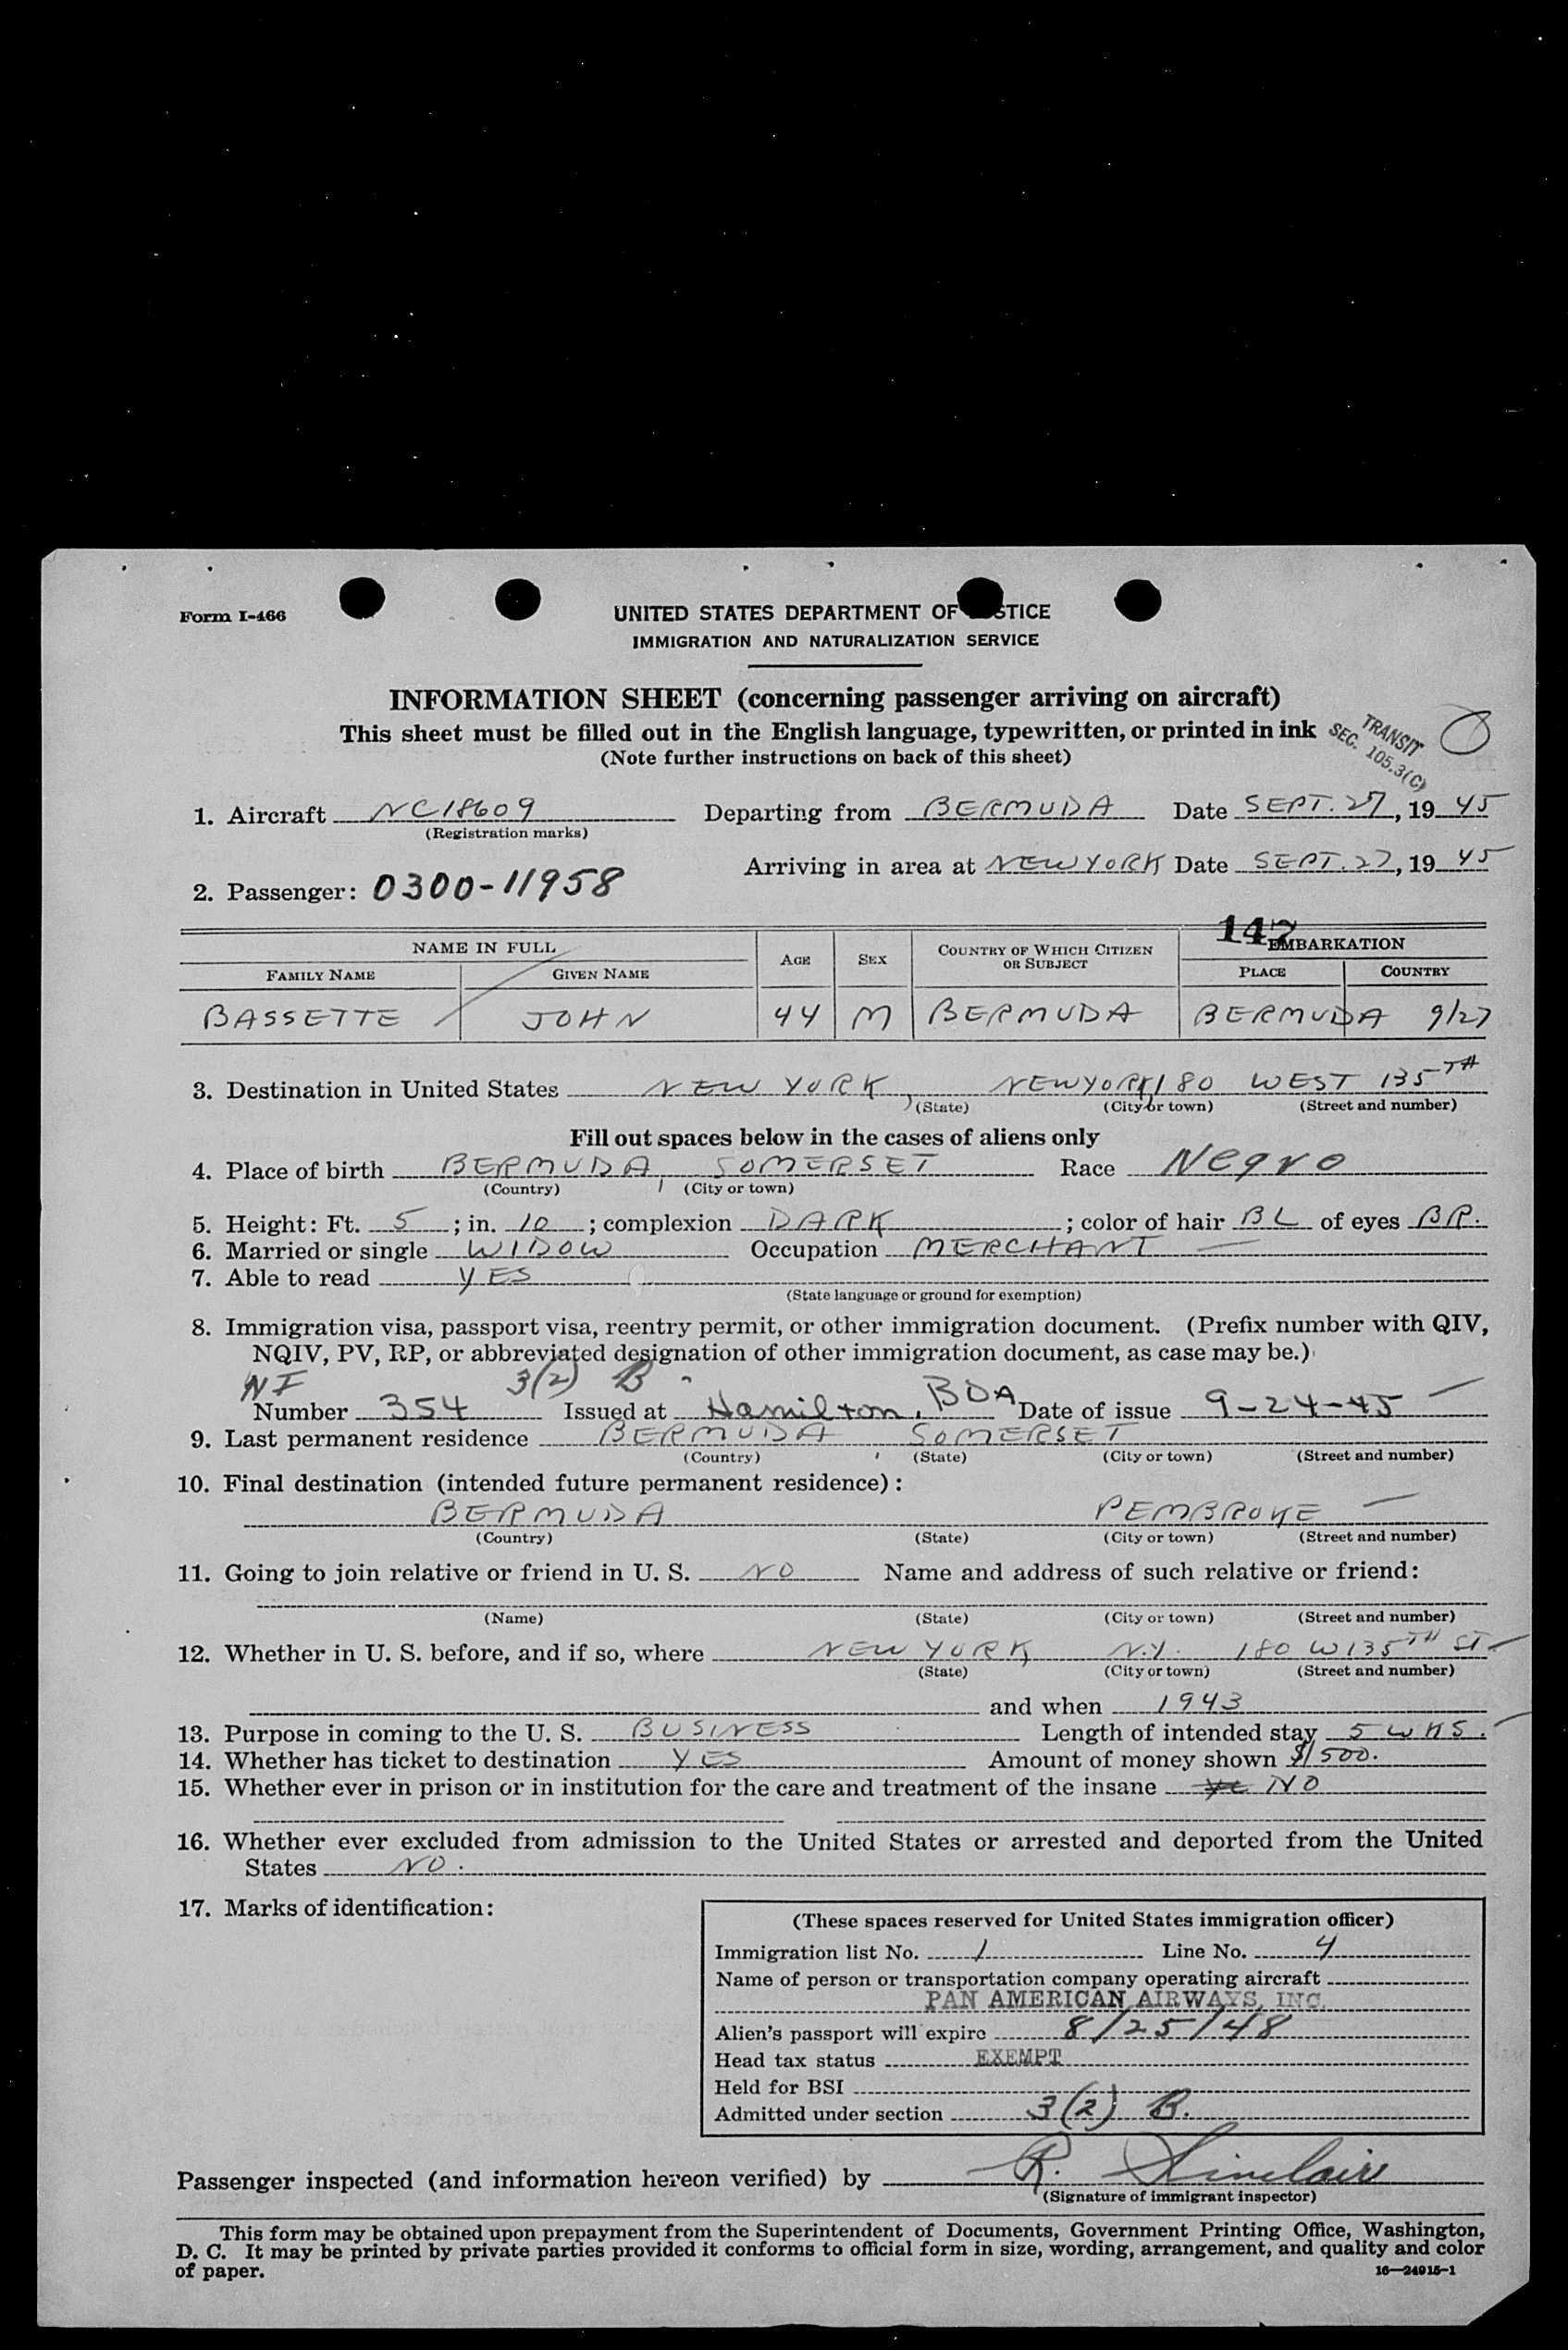 Form I-466
UNITED STATES DEPARTMENT OF STICE
IMMIGRATION AND NATURALIZATION SERVICE
INFORMATION SHEET (concerning passenger arriving on aircraft)
This sheet must be filled out in the English language, typewritten, or printed in ink
(Note further instructions on back of this sheet)
TRANSIT
SEC. 105.3(C)
1. Aircraft NC18609 Departing from BERMUDA Date SEPT. 27, 19 45
(Registration marks)
Arriving in area at NEW YORK Date SEPT. 27, 19 45
2. Passenger: 0300-11958
147
NAME IN FULL AGE SEX COUNTRY OF WHICH CITIZEN OR SUBJECT EMBARKATION
FAMILY NAME GIVEN NAME PLACE COUNTRY
BASSETTE JOHN 44 M BERMUDA BERMUDA 9/27
3. Destination in United States NEW YORK, NEW YORK, 180 WEST 135TH
(State) (City or town) (Street and number)
Fill out spaces below in the cases of aliens only
4. Place of birth BERMUDA, SOMERSET Race Negro
(Country) (City or town)
5. Height: Ft. 5; in. 10; complexion DARK; color of hair BL of eyes BR.
6. Married or single WIDOW Occupation MERCHANT
7. Able to read YES
(State language or ground for exemption)
8. Immigration visa, passport visa, reentry permit, or other immigration document. (Prefix number with QIV,
NQIV, PV, RP, or abbreviated designation of other immigration document, as case may be.)
NI 3(2) B
Number 354 Issued at Hamilton, BDA Date of issue 9-24-45
9. Last permanent residence BERMUDA, SOMERSET
(Country) (State) (City or town) (Street and number)
10. Final destination (intended future permanent residence):
BERMUDA PEMBROKE
(Country) (State) (City or town) (Street and number)
11. Going to join relative or friend in U. S. NO Name and address of such relative or friend:
(Name) (State) (City or town) (Street and number)
12. Whether in U. S. before, and if so, where NEW YORK, N.Y. 180 W 135TH ST
(State) (City or town) (Street and number)
and when 1943
13. Purpose in coming to the U. S. BUSINESS Length of intended stay 5 WKS.
14. Whether has ticket to destination YES Amount of money shown $1500.
15. Whether ever in prison or in institution for the care and treatment of the insane NO
16. Whether ever excluded from admission to the United States or arrested and deported from the United
States NO.
17. Marks of identification:
(These spaces reserved for United States immigration officer)
Immigration list No. 1 Line No. 4
Name of person or transportation company operating aircraft
PAN AMERICAN AIRWAYS, INC.
Alien's passport will expire 8/25/48
Head tax status EXEMPT
Held for BSI
Admitted under section 3(2) B.
Passenger inspected (and information hereon verified) by R. Sinclair
(Signature of immigrant inspector)
This form may be obtained upon prepayment from the Superintendent of Documents, Government Printing Office, Washington,
D. C. It may be printed by private parties provided it conforms to official form in size, wording, arrangement, and quality and color
of paper.
16—24915-1